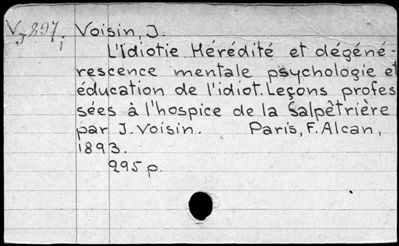 V,297, Voisin, J.
L'Idiotie Hérédité et dégéné-
rescence mentale psychologie et
éducation de l'idiot. Leçons profes
sées à l'hospice de la Salpêtrière
par J. Voisin. Paris, F. Alcan,
1893.
295 p.